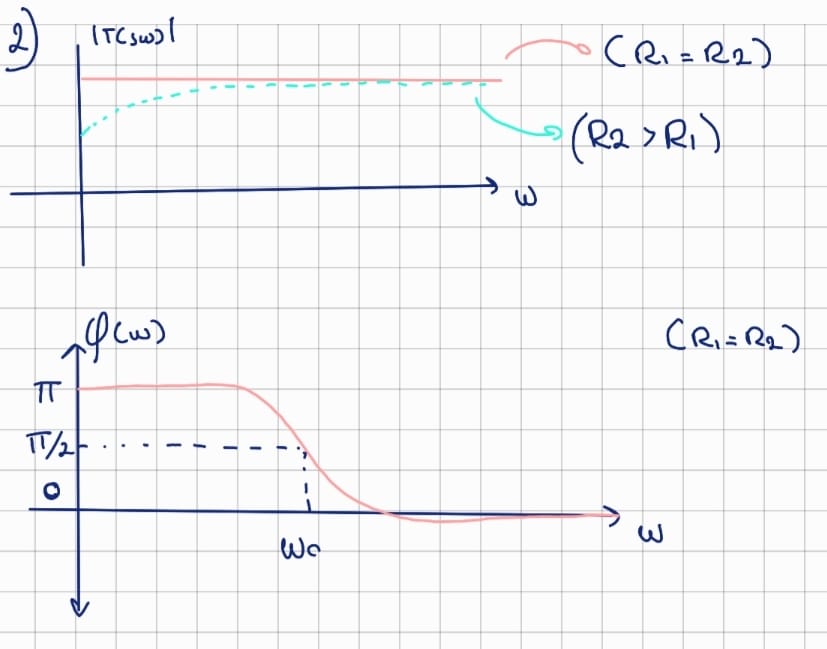 2)
|T(jw)|
(R₁ = R2)
(R2 > R₁)
w
φ(w)
(R₁ = R2)
π
π/2
0
w₀
w